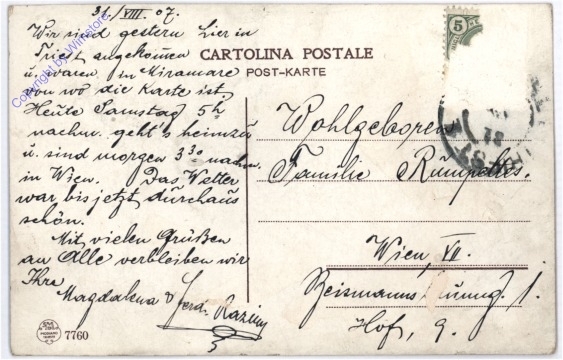 31/VIII. 07.
Wir sind gestern hier in
Triest angekommen
u. waren in Miramare
von wo die Karte ist.
Heute Samstag 5h
nachm. geht's heimzu
u. sind morgen 3 30 nachm.
in Wien. Das Wetter
war bis jetzt durchaus
schön.
Mit vielen Grüßen
an Alle verbleiben wir
Ihre
Magdalena & Ferd.
CARTOLINA POSTALE
POST-KARTE
5
Wohlgeboren
Familie Rumpelles.
Wien, VII.
1.
Hof, 9.
7760
Copyright by Winstore